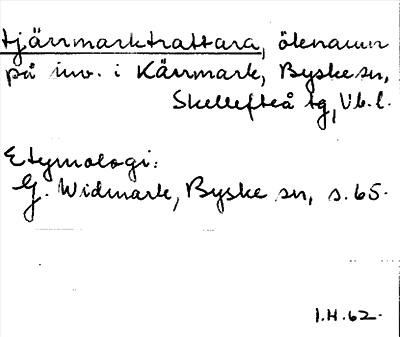 tjärrmarktrattara, ökenamn
på inv. i Kärrmark, Byske sn,
Skellefteå tg, Vb. l.
Etymologi:
G. Widmark, Byske sn, s. 65.
I.H. 62.